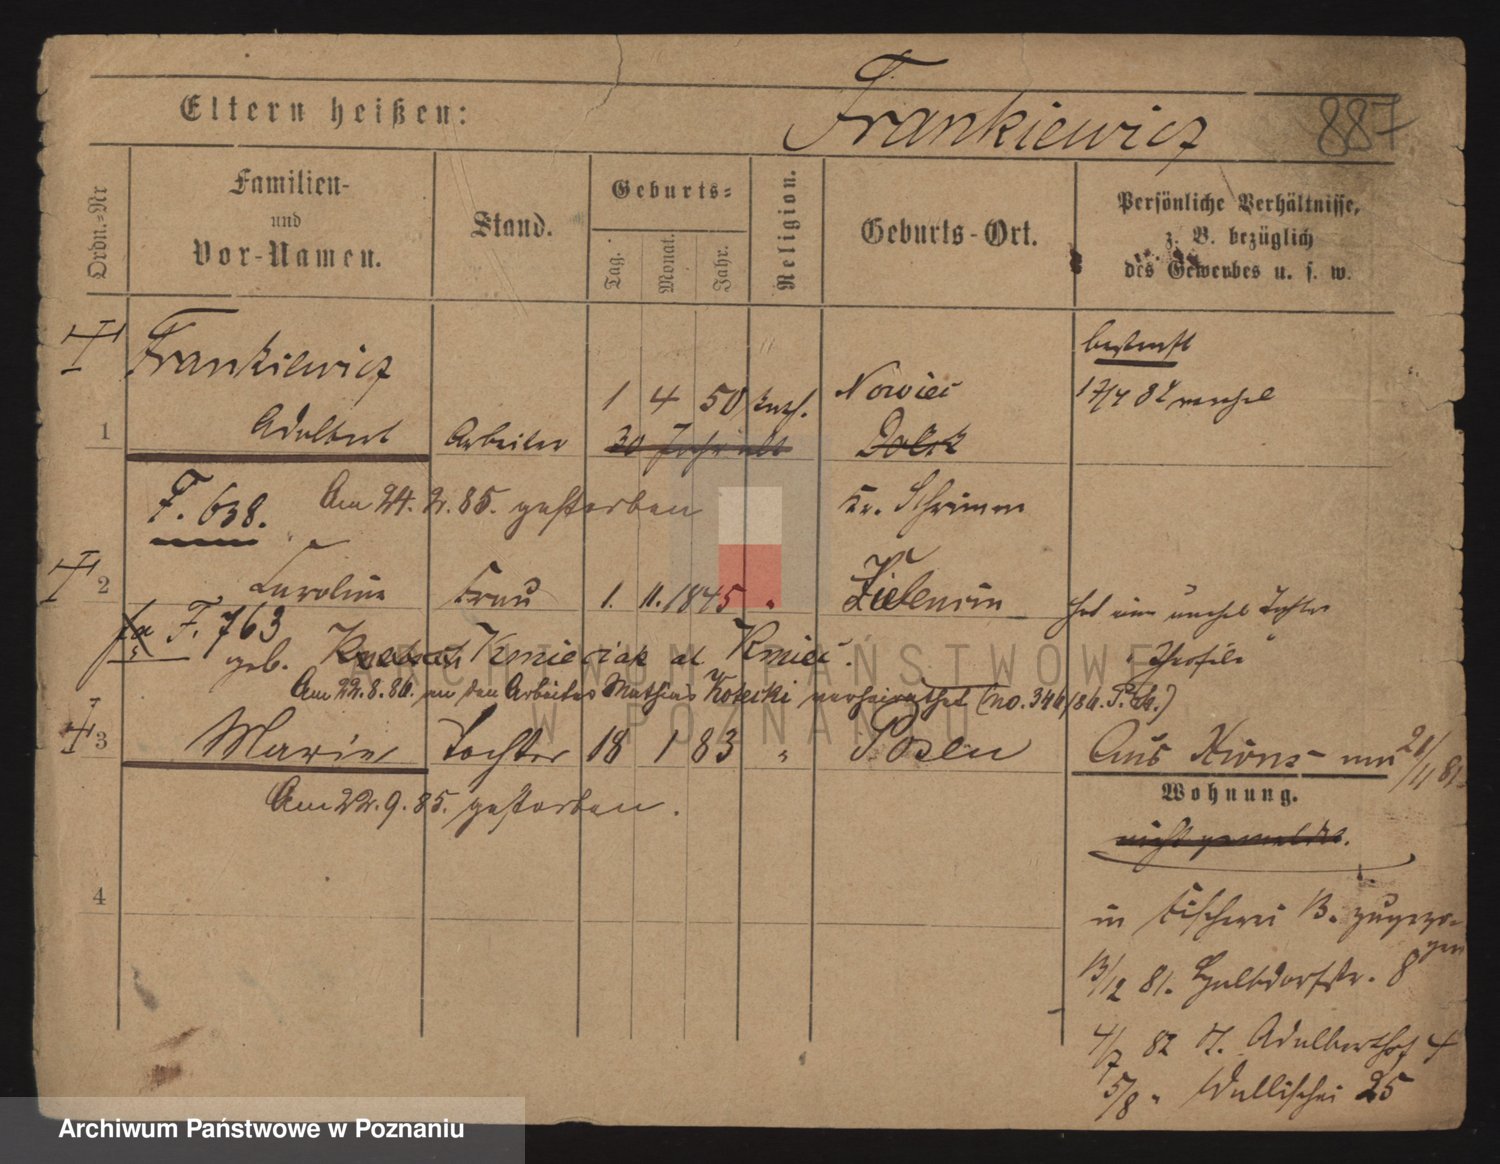 Eltern heißen:
Frankiewicz
887
Ordn.-Nr
Familien-
und
Vor-Namen.
Stand.
Geburts-
Tag.
Monat.
Jahr.
Religion.
Geburts-Ort.
Persönliche Verhältnisse,
z. B. bezüglich
des Gewerbes u. s. w.
Frankiewicz
bestraft
1 4 50 kath. Nowiec
17/4 82
1 Adalbert Arbeiter 30 Jahr alt Dolzk
F. 638. Am 24. 2. 85. gestorben
Kr. Schrimm
2 Caroline Frau 1. 11. 1845 " Zielencin
hat ein unehel Tochter
F. 763
geb. Kmieciak al Kmiec.
Theofile
Am 22.8.86. an den Arbeiter Mathias Kotecki verheirathet (no. 346/86. P. St.)
3 Marie Tochter 18 1 83 " Posen
Aus Kions
Am 22. 9. 85. gestorben.
Wohnung.
nicht gemeldet.
4
in Fischerei 13. zugezogen
13/12 81. Halbdorfstr. 8
4/7 82 St. Adalberthof 4
5/8 " Wallischei 25
ARCHIWUM PAŃSTWOWE
W POZNANIU
Archiwum Państwowe w Poznaniu